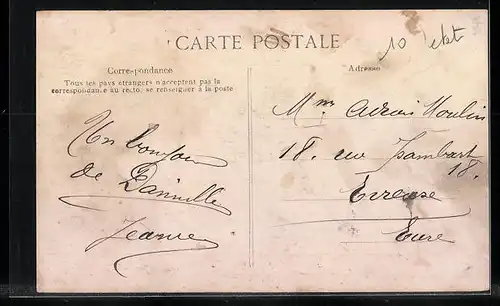 CARTE POSTALE
10
Correspondance
Tous les pays étrangers n'acceptent pas la
correspondance au recto, se renseigner à la poste
Adresse
Un bonjour
de Damville
Jeanne
Moulin
18. rue Isambart
18.
Eure